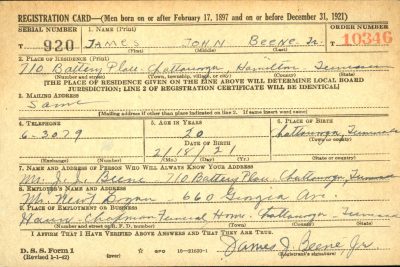 REGISTRATION CARD—(Men born on or after February 17, 1897 and on or before December 31, 1921)
SERIAL NUMBER 1. NAME (Print) ORDER NUMBER
T 920 JAMES JOHN BEENE Jr. 10346
(First) (Middle) (Last)
2. PLACE OF RESIDENCE (Print)
710 Battery Place Chattanooga, Hamilton Tennessee
(Number and street) (Town, township, village, or city) (County) (State)
[THE PLACE OF RESIDENCE GIVEN ON THE LINE ABOVE WILL DETERMINE LOCAL BOARD
JURISDICTION; LINE 2 OF REGISTRATION CERTIFICATE WILL BE IDENTICAL]
3. MAILING ADDRESS
Same
[Mailing address if other than place indicated on line 2. If same insert word same]
4. TELEPHONE 5. AGE IN YEARS 6. PLACE OF BIRTH
6-3079 20 Chattanooga
DATE OF BIRTH (Town or county)
2 18 21 Tennessee
(Exchange) (Number) (Mo.) (Day) (Yr.) (State or country)
7. NAME AND ADDRESS OF PERSON WHO WILL ALWAYS KNOW YOUR ADDRESS
Mr. Beene 710 Battery Place Chattanooga, Tennessee
8. EMPLOYER'S NAME AND ADDRESS
Mr. 660 Georgia Ave.
9. PLACE OF EMPLOYMENT OR BUSINESS
Chapman Funeral Home Chattanooga Tennessee
(Number and street or R. F. D. number) (Town) (County) (State)
I AFFIRM THAT I HAVE VERIFIED ABOVE ANSWERS AND THAT THEY ARE TRUE.
D. S. S. Form 1
(Revised 1-1-42) (over) GPO 16—21630-1 James J. Beene Jr